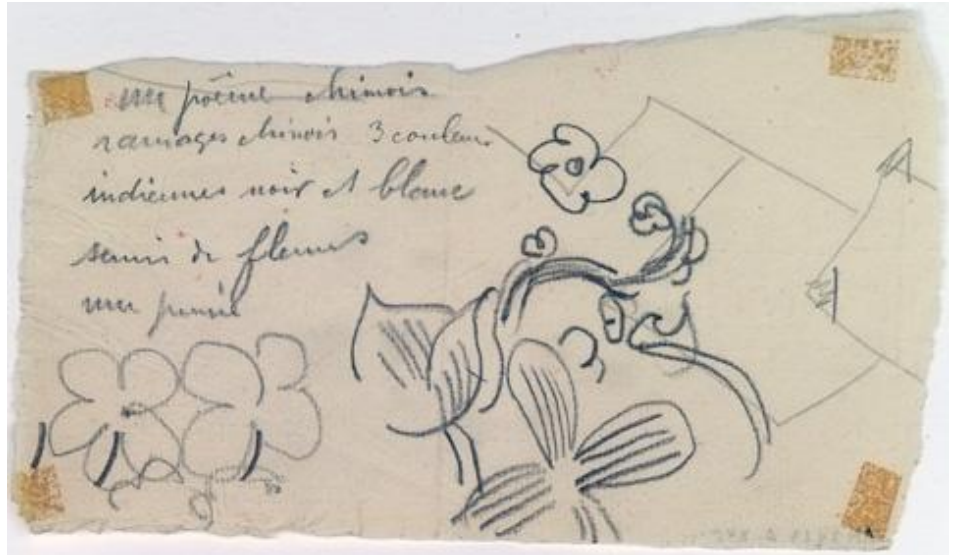 un poème chinois
ramages chinois 3 couleurs
indiennes noir et blanc
semis de fleurs
une